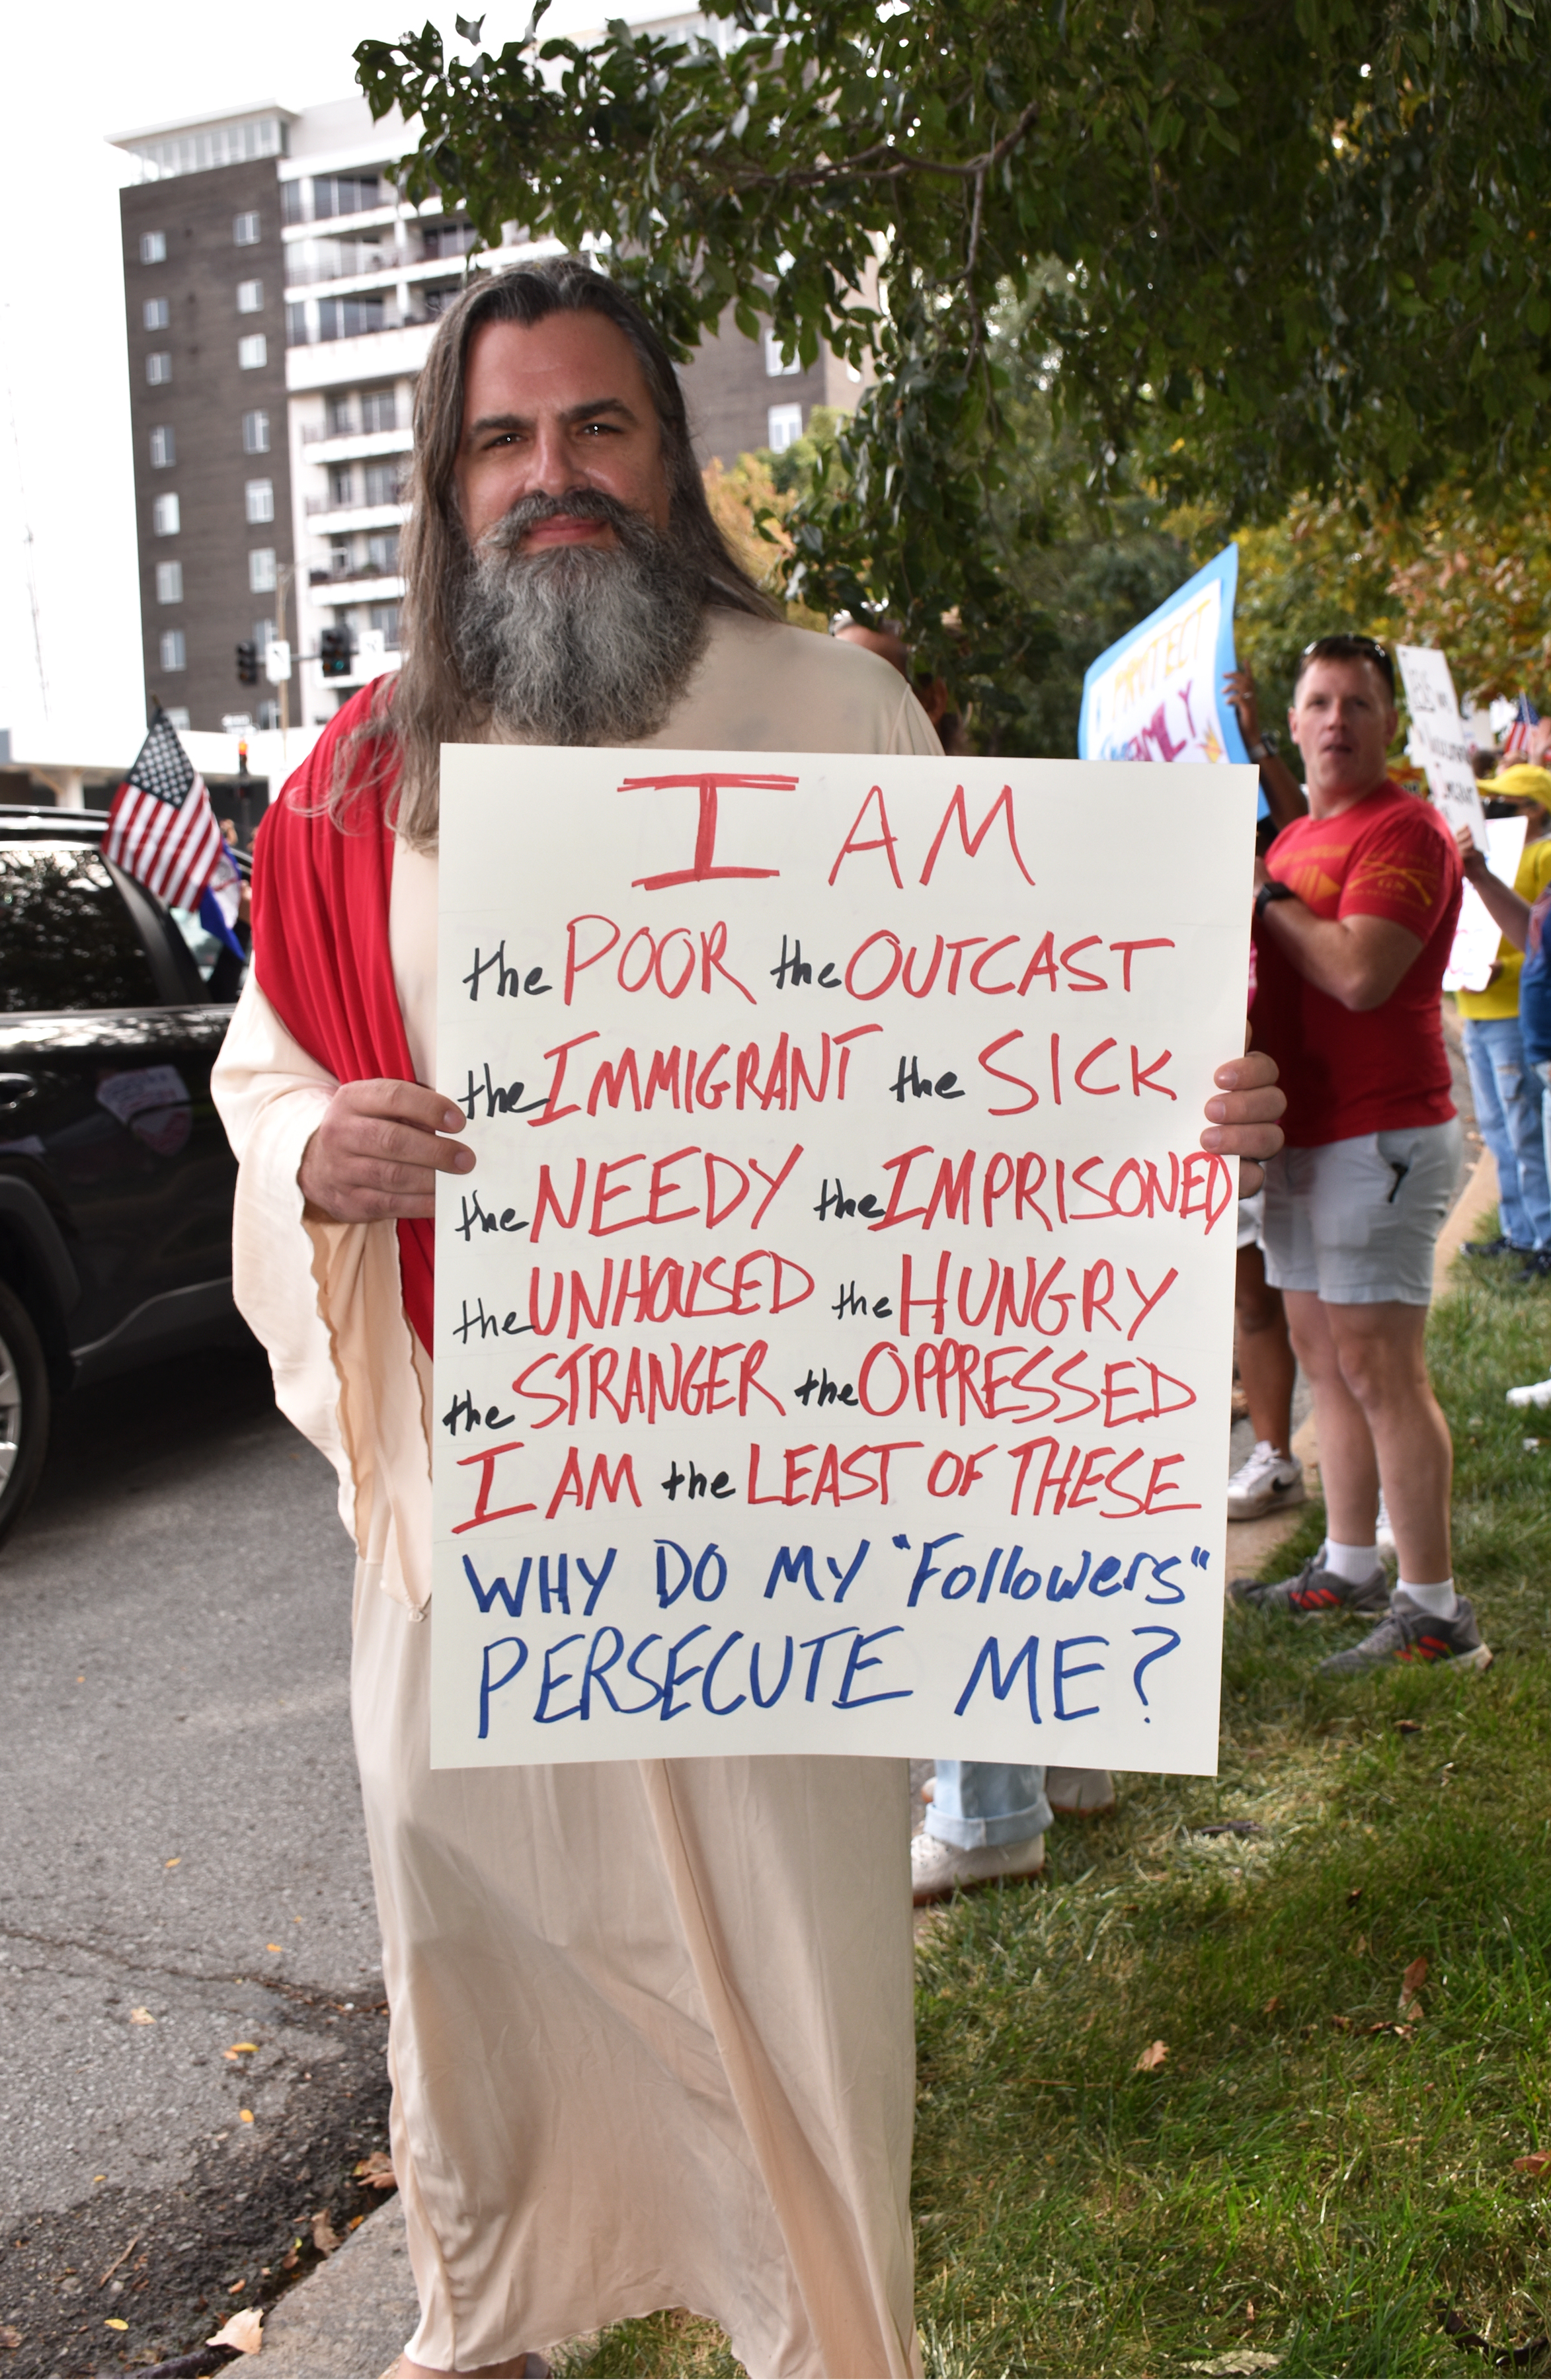 I AM
the POOR the OUTCAST
the IMMIGRANT the SICK
the NEEDY the IMPRISONED
the UNHOUSED the HUNGRY
the STRANGER the OPPRESSED
I AM the LEAST OF THESE
WHY DO MY "Followers"
PERSECUTE ME?
PROTECT
FAMILY